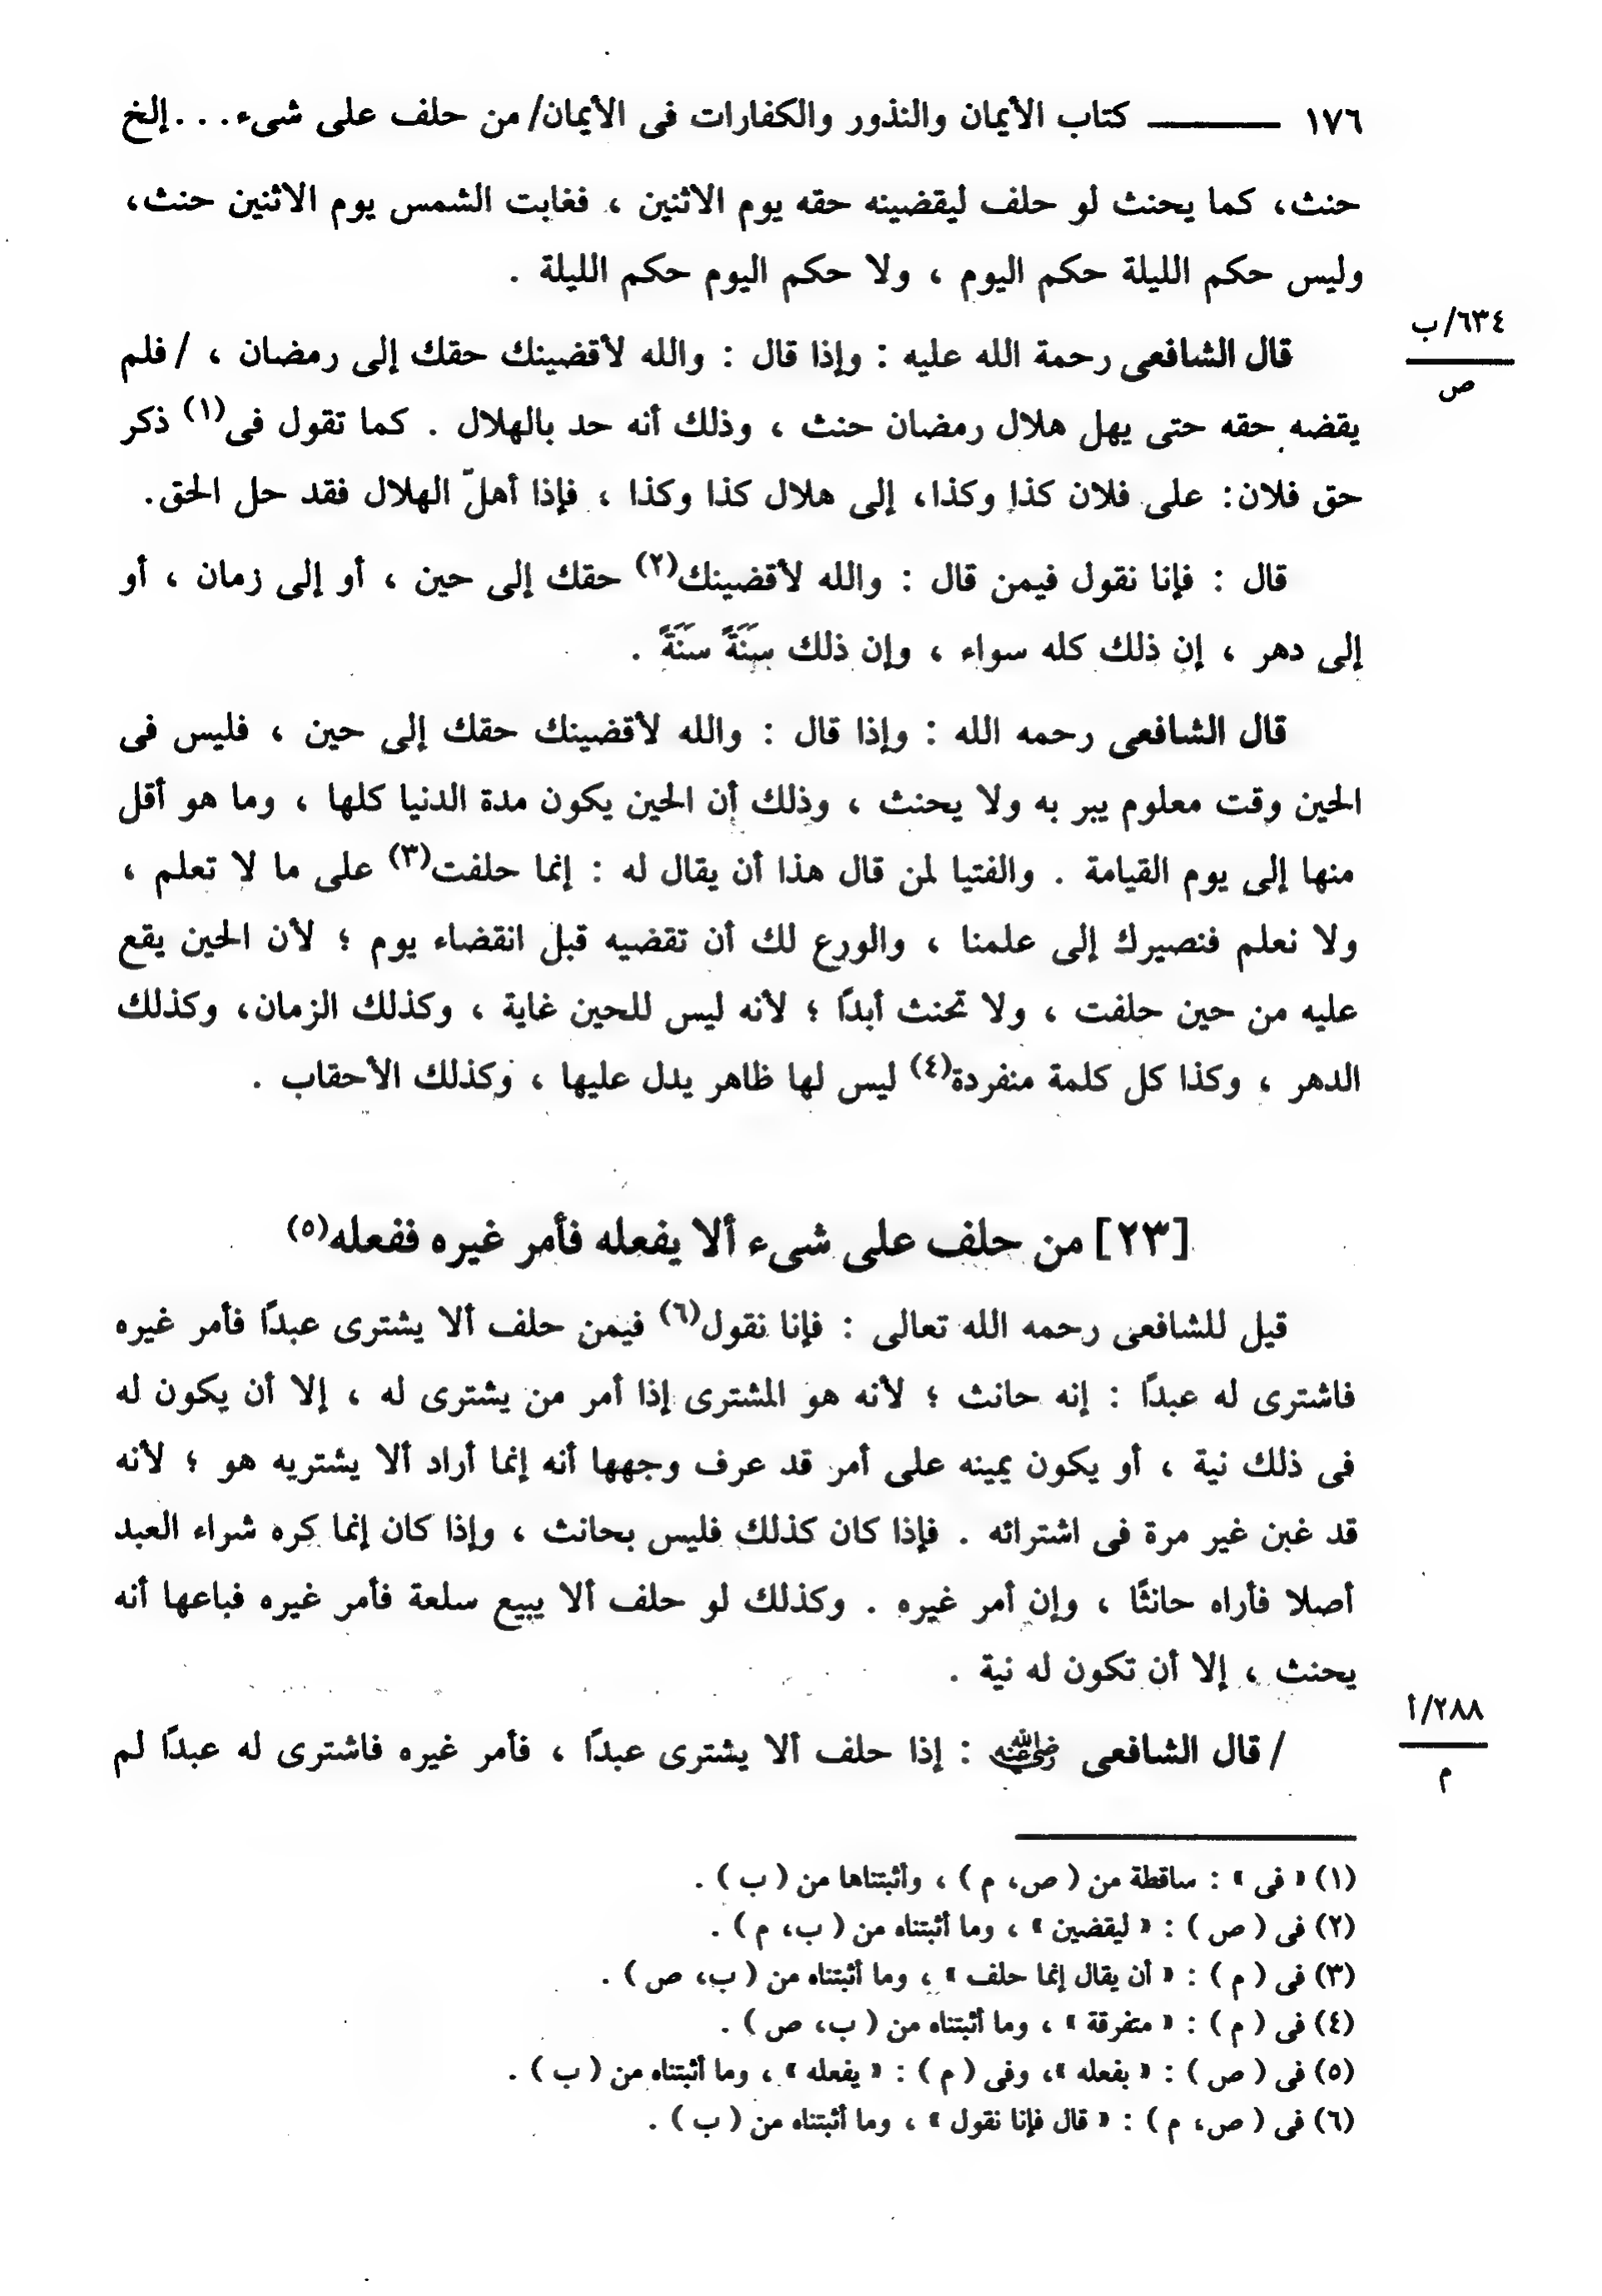 ١٧٦ ــــــــــ كتاب الأيمان والنذور والكفارات فى الأيمان/ من حلف على شىء. . .إلخ
حنث، كما يحنث لو حلف ليقضينه حقه يوم الاثنين ، فغابت الشمس يوم الاثنين حنث،
وليس حكم الليلة حكم اليوم ، ولا حكم اليوم حكم الليلة .
٦٣٤/ب
ص
قال الشافعى رحمة الله عليه : وإذا قال : والله لأقضينك حقك إلى رمضان ، /فلم
يقضه حقه حتى يهل هلال رمضان حنث ، وذلك أنه حد بالهلال . كما تقول فى(١) ذكر
حق فلان: على فلان كذا وكذا، إلى هلال كذا وكذا ، فإذا أهلّ الهلال فقد حل الحق.
قال : فإنا نقول فيمن قال : والله لأقضينك(٢) حقك إلى حين ، أو إلى زمان ، أو
إلى دهر ، إن ذلك كله سواء ، وإن ذلك سَنَةً سَنَةً .
قال الشافعى رحمه الله : وإذا قال : والله لأقضينك حقك إلى حين ، فليس فى
الحين وقت معلوم يبر به ولا يحنث ، وذلك أن الحين يكون مدة الدنيا كلها ، وما هو أقل
منها إلى يوم القيامة . والفتيا لمن قال هذا أن يقال له : إنما حلفت(٣) على ما لا تعلم ،
ولا نعلم فنصيرك إلى علمنا ، والورع لك أن تقضيه قبل انقضاء يوم ؛ لأن الحين يقع
عليه من حين حلفت ، ولا تحنث أبدًا ؛ لأنه ليس للحين غاية ، وكذلك الزمان، وكذلك
الدهر ، وكذا كل كلمة منفردة(٤) ليس لها ظاهر يدل عليها ، وكذلك الأحقاب .
[٢٣] من حلف على شىء ألا يفعله فأمر غيره ففعله(٥)
قيل للشافعى رحمه الله تعالى : فإنا نقول(٦) فيمن حلف ألا يشترى عبدًا فأمر غيره
فاشترى له عبدًا : إنه حانث ؛ لأنه هو المشترى إذا أمر من يشترى له ، إلا أن يكون له
فى ذلك نية ، أو يكون يمينه على أمر قد عرف وجهها أنه إنما أراد ألا يشتريه هو ؛ لأنه
قد غبن غير مرة فى اشترائه . فإذا كان كذلك فليس بحانث ، وإذا كان إنما كره شراء العبد
أصلا فأراه حانثًا ، وإن أمر غيره . وكذلك لو حلف ألا يبيع سلعة فأمر غيره فباعها أنه
يحنث ، إلا أن تكون له نية .
٢٨٨/أ
م
/ قال الشافعى رضي الله عنه : إذا حلف ألا يشترى عبدًا ، فأمر غيره فاشترى له عبدًا لم
(١) « فى » : ساقطة من ( ص، م ) ، وأثبتناها من ( ب ) .
(٢) فى ( ص ) : « ليقضين » ، وما أثبتناه من ( ب، م ) .
(٣) فى ( م ) : « أن يقال إنما حلف » ، وما أثبتناه من ( ب، ص ) .
(٤) فى ( م ) : « متفرقة » ، وما أثبتناه من ( ب، ص ) .
(٥) فى ( ص ) : « بفعله »، وفى ( م ) : « يفعله » ، وما أثبتناه من ( ب ) .
(٦) فى ( ص، م ) : « قال فإنا نقول » ، وما أثبتناه من ( ب ) .